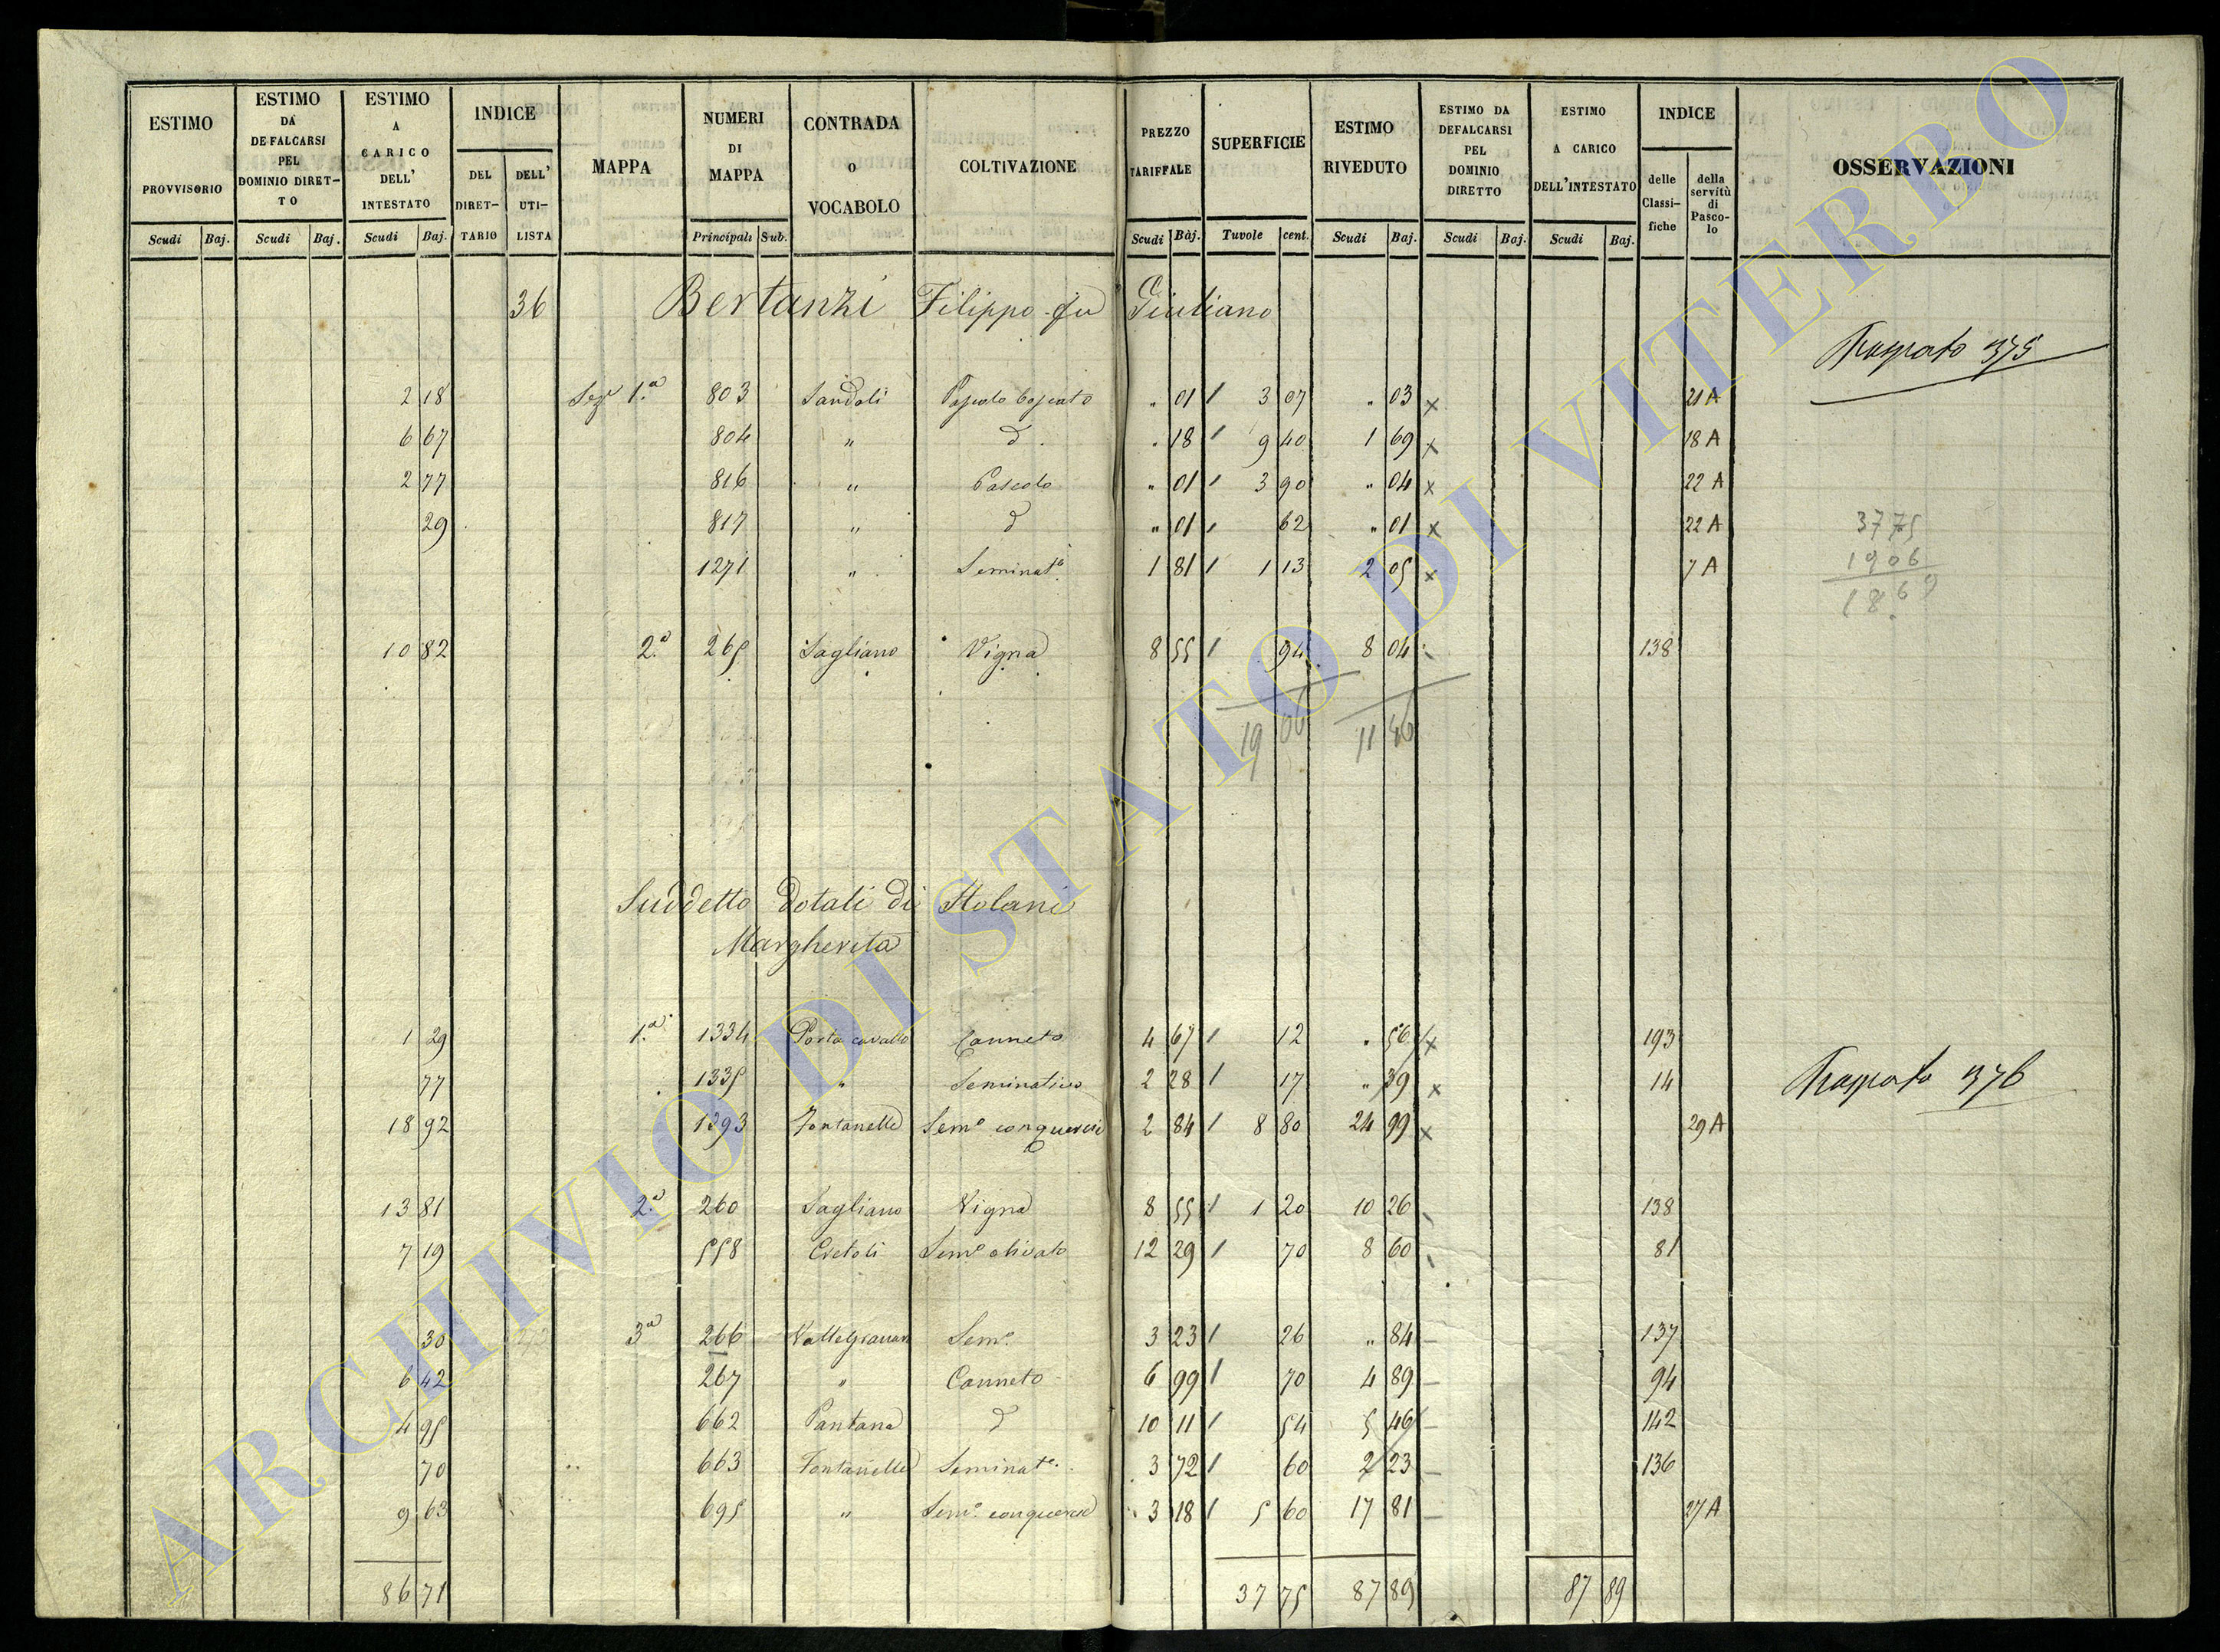 ESTIMO PROVVISORIO
ESTIMO DA DEFALCARSI PEL DOMINIO DIRET-TO
ESTIMO A CARICO DELL' INTESTATO
INDICE
DEL DIRET-TARIO
DELL' UTI-LISTA
MAPPA
NUMERI DI MAPPA
CONTRADA o VOCABOLO
COLTIVAZIONE
PREZZO TARIFFALE
SUPERFICIE
ESTIMO RIVEDUTO
ESTIMO DA DEFALCARSI PEL DOMINIO DIRETTO
ESTIMO A CARICO DELL'INTESTATO
INDICE
delle Classi-fiche
della servitù di Pasco-lo
OSSERVAZIONI
Scudi Baj. Scudi Baj. Scudi Baj. Principali Sub. Scudi Baj. Tuvole cent. Scudi Baj. Scudi Baj. Scudi Baj.
36 Bertanzi Filippo fu Giuliano
Trasportato 375
2 18 Sez 1.a 803 Sandoli Pascolo boscato " 01 3 07 " 03 x 21 A
6 67 804 " d . 18 9 40 1 69 x 18 A
2 77 816 " Pascolo " 01 3 90 " 04 x 22 A
29 817 " d " 01 62 " 01 x 22 A
1271 " Seminato 1 81 1 13 2 05 x 7 A
3775
1906
1869
10 82 2.a 265 Sagliano Vigna 8 55 94 8 04 138
19 06 11 46
Suddetto Dotali di Stolani
Margherita
1 29 1.a 1334 Porta cavallo Canneto 4 67 12 " 56 x 193
77 1335 " Seminativo 2 28 17 " 39 x 14
Trasportato 376
18 92 1393 Fontanelle Sem.o con querce 2 84 8 80 24 99 x 29 A
13 81 2.a 260 Sagliano Vigna 8 55 1 20 10 26 138
7 19 558 Cretoli Sem.o olivato 12 29 70 8 60 81
30 3a 266 Sem.o 3 23 26 " 84 137
6 42 267 " Canneto 6 99 70 4 89 94
4 95 662 Pantana d 10 11 54 5 46 142
70 663 Fontanelle Seminato 3 72 60 2 23 136
9 63 695 " Sem.o con querce 3 18 5 60 17 81 27 A
86 71 37 75 87 89 87 89
ARCHIVIO DI STATO DI VITERBO